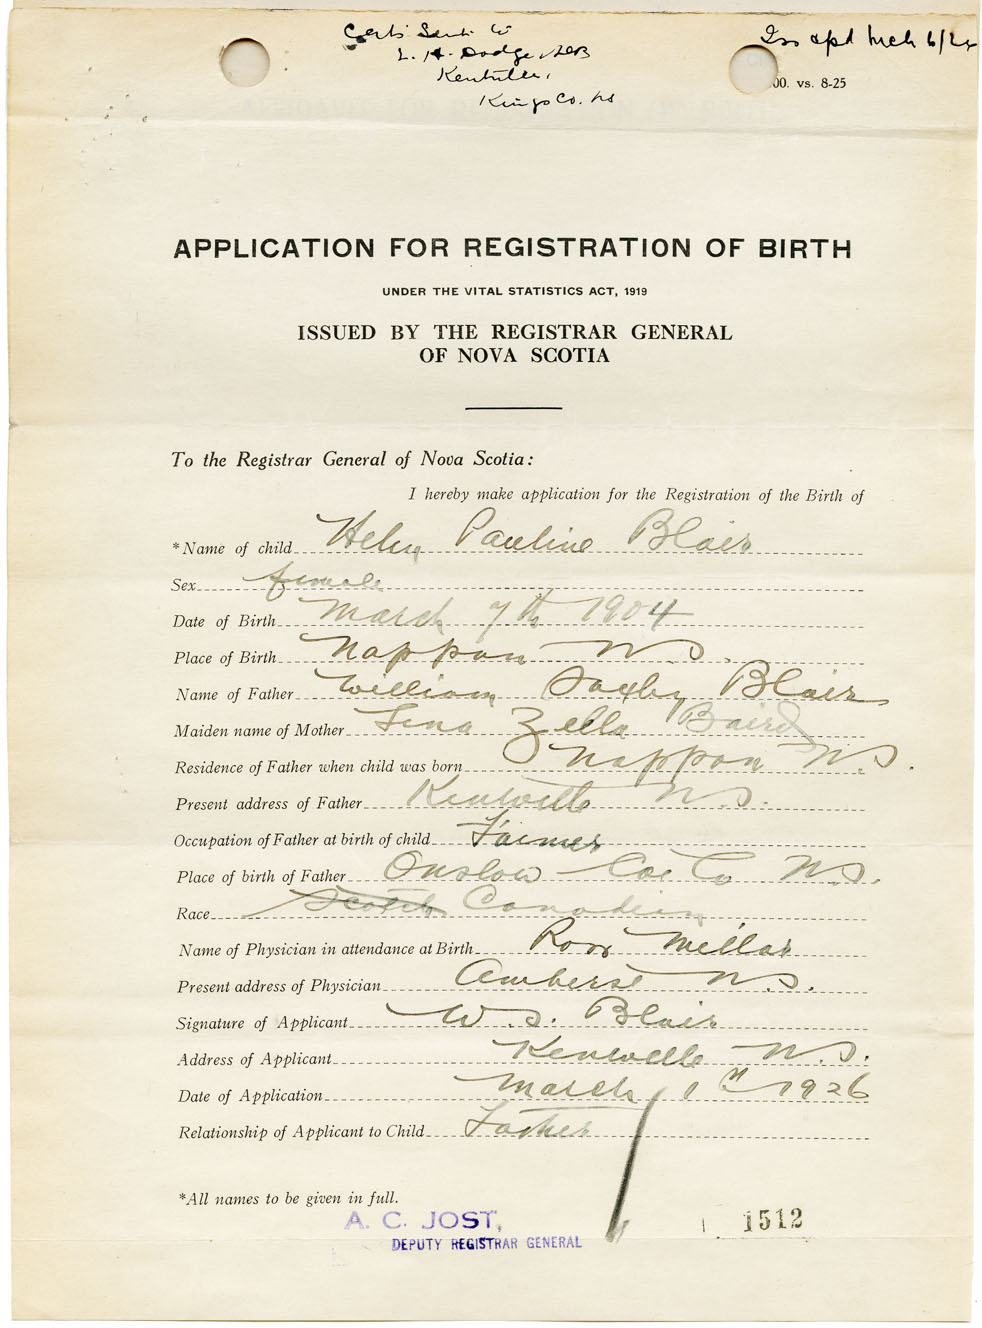 Certs Sent to
L. H. Dodge
Kentville,
Kings Co. NS
apd Mch 6/26
00. vs. 8-25
APPLICATION FOR REGISTRATION OF BIRTH
UNDER THE VITAL STATISTICS ACT, 1919
ISSUED BY THE REGISTRAR GENERAL
OF NOVA SCOTIA
To the Registrar General of Nova Scotia:
I hereby make application for the Registration of the Birth of
*Name of child Helen Pauline Blair
Sex female
Date of Birth March 7th 1904
Place of Birth Nappan N.S.
Name of Father William Saxby Blair
Maiden name of Mother Lena Zella Baird
Residence of Father when child was born Nappan N.S.
Present address of Father Kentville N.S.
Occupation of Father at birth of child Farmer
Place of birth of Father Onslow Col Co N.S.
Race Scotch Canadian
Name of Physician in attendance at Birth Ross Millar
Present address of Physician Amherst N.S.
Signature of Applicant W. S. Blair
Address of Applicant Kentville N.S.
Date of Application March 1st 1926
Relationship of Applicant to Child Father
*All names to be given in full.
A. C. JOST,
DEPUTY REGISTRAR GENERAL
1512